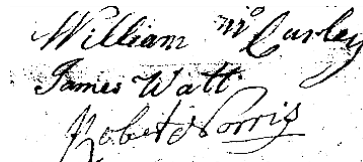 William McCurley
James Watt
Robert Norris